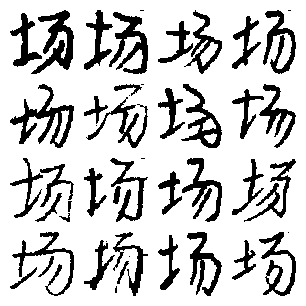 场场场场
场场场场
场场场场
场场场场